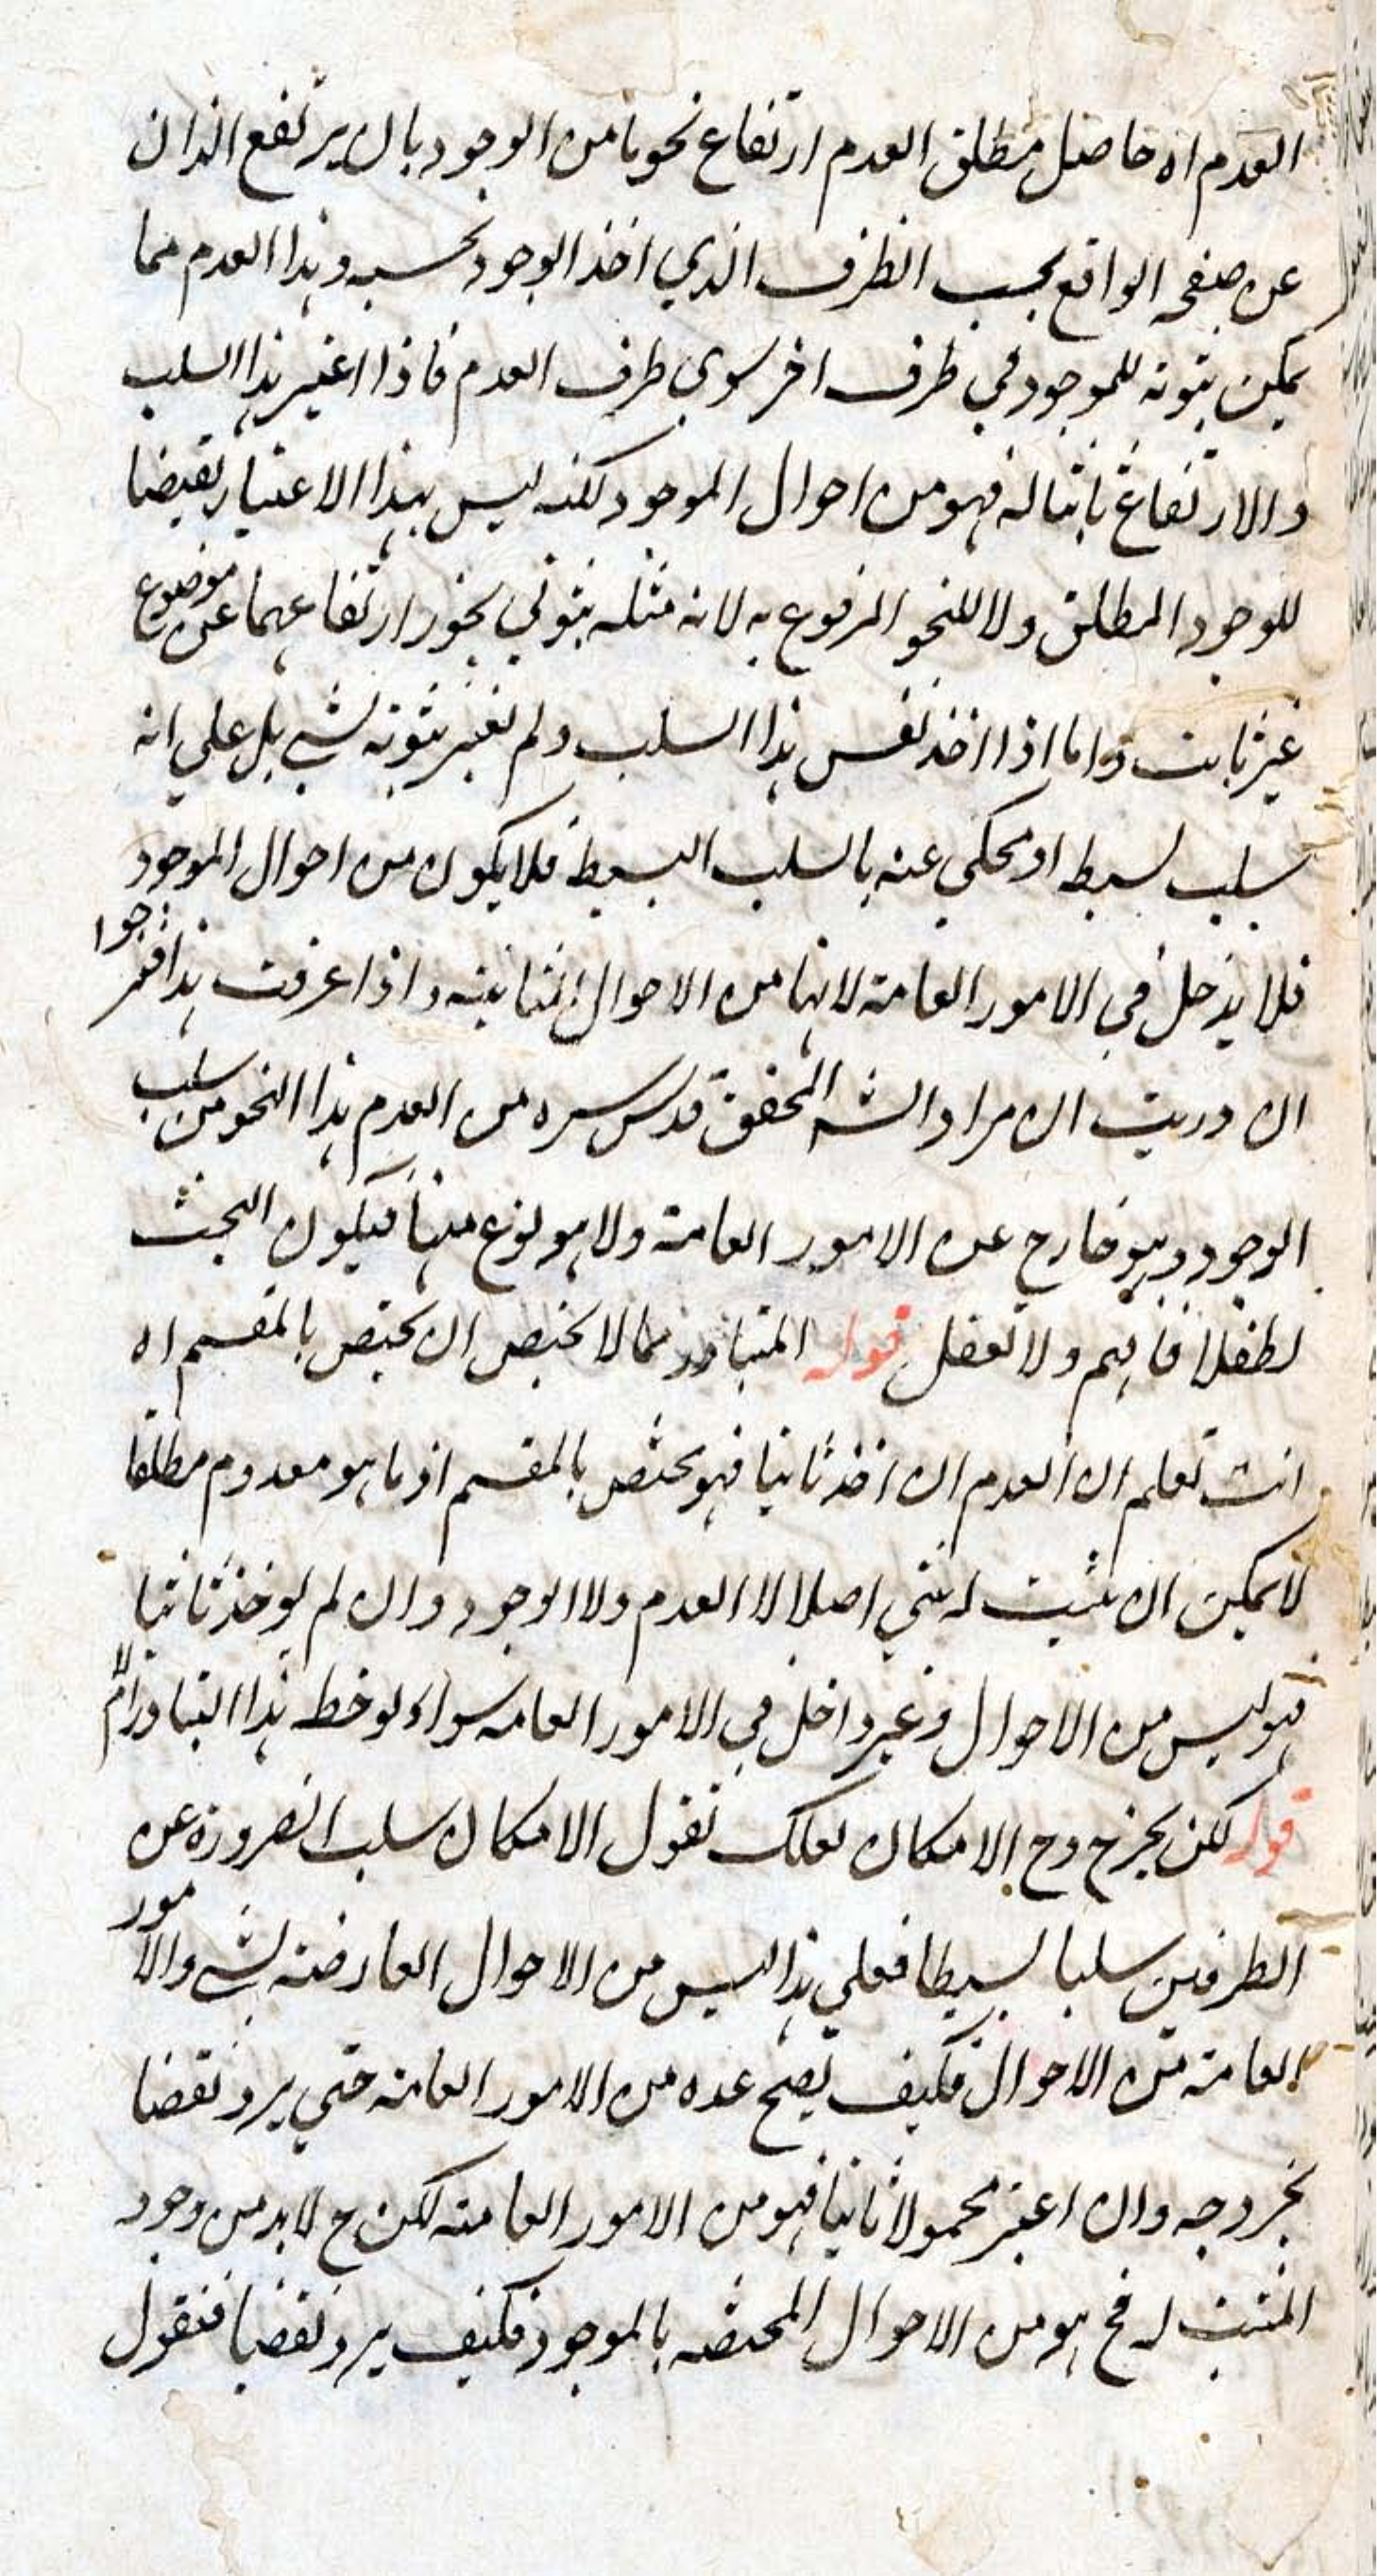 العدم اه حاصل مطلق العدم ارتفاع نحو ما من الوجود بان يرتفع الذات
عن صفحه الواقع بحسب الظرف الذي اخذ الوجود بحسبه وهذا العدم مما
يمكن ثبوته للموجود في ظرف اخر سوي ظرف العدم فاذا اعتبر هذا السلب
والارتفاع ثابتا له فهو من احوال الموجود لكنه ليس بهذا الاعتبار نقيضا
للوجود المطلق ولا للنحو المرفوع به لانه مثله ثبوتي يجوز ارتفاعهما عن موضوع
غير ثابت واما اذا اخذ نفس هذا السلب ولم تعتبر ثبوته لشي بل علي انه
سلب بسيط او محكي عنه بالسلب البسيط فلا يكون من احوال الموجود
فلا يدخل في الامور العامة لانها من الاحوال الثابتة واذا عرفت هذا فمرجوا
ان دريت ان مراد الشه المحقق قدس سره من العدم هذا النحو من سلب
الوجود وهو خارج عن الامور العامة ولا هو نوع منها فيكون البحث
تطفلا فافهم ولا تغفل قوله المتبادر مما لا يختص ان يختص بالمقسم اه
انت تعلم ان العدم ان اخذ ثابتا فهو يختص بالمقسم اذ ما هو معدوم مطلقا
لا يمكن ان يثبت له شي اصلا لا العدم ولا الوجود وان لم يوخذ ثابتا
فهو ليس من الاحوال وغير داخل في الامور العامه سواء لوحظ هذا التبادر ام لا
قوله لكن يخرج وح الامكان لعلك تقول الامكان سلب الضرورة عن
الطرفين سلبا بسيطا فعلي هذا ليس من الاحوال العارضة لشي والامور
العامة من الاحوال فكيف يصح عده من الامور العامة حتي يرد نقضا
بخروجه وان اعتبر محمولا ثابتا فهو من الامور العامة لكن ح لابد من وجود
المثبت له فح هو من الاحوال المختصه بالموجود فكيف يرد نقضا فنقول